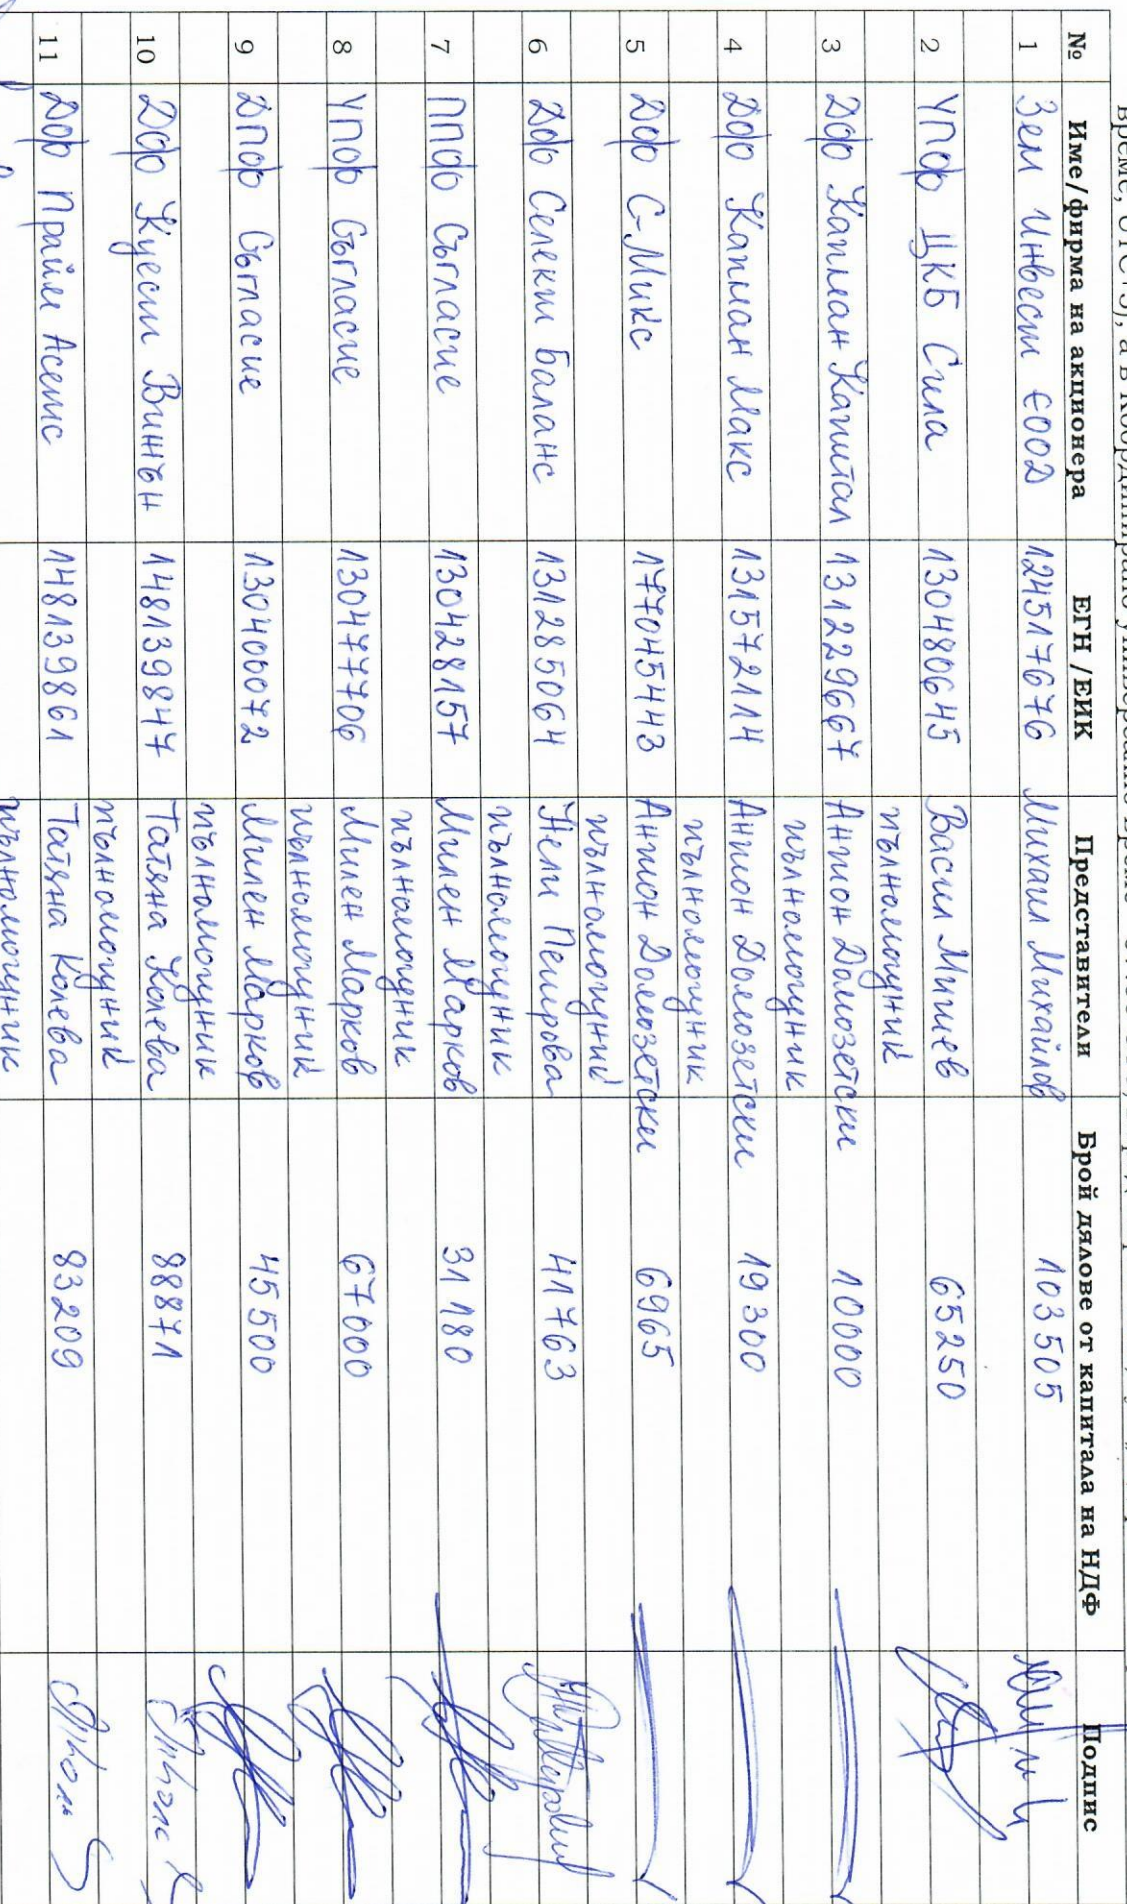 № Име/фирма на акционера ЕГН /ЕИК Представители Брой дялове от капитала на НДФ Подпис
1 Зем Инвест ЕООД 124517676 Михаил Михайлов 103505
2 УПФ ЦКБ Сила 130480645 Васил Мишев 65250
пълномощник
3 Дф Капман Капитал 131229667 Антон Домозетски 10000
пълномощник
4 Дф Капман Макс 131572114 Антон Домозетски 19300
пълномощник
5 Дф С-Микс 177045443 Антон Домозетски 6965
пълномощник
6 Дф Селект Баланс 131285064 Нели Петрова 41763
пълномощник
7 ППФ Съгласие 130428157 Милен Марков 31180
пълномощник
8 УПФ Съгласие 130477706 Милен Марков 67000
пълномощник
9 ДПФ Съгласие 130400072 Милен Марков 45500
пълномощник
10 Дф Куест Вижън 148139847 Татяна Колева 88871
пълномощник
11 Дф Прайм Асетс 148139861 Татяна Колева 83209
пълномощник